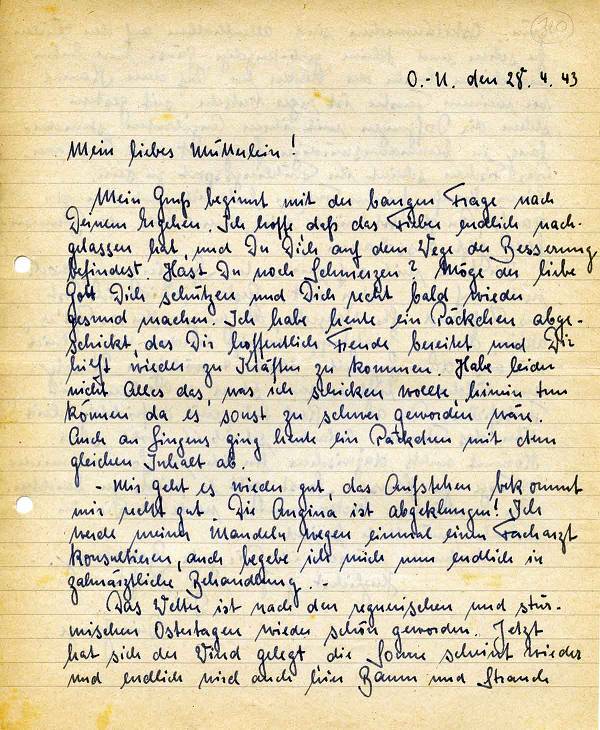 340
O.-U. den 28. 4. 43
Mein liebes Mütterlein!
Mein Gruß beginnt mit der bangen Frage nach
Deinem Ergehen. Ich hoffe daß das Fieber endlich nach-
gelassen hat, und Du Dich auf dem Wege der Besserung
befindest. Hast Du noch Schmerzen? Möge der liebe
Gott Dich schützen und Dich recht bald wieder
gesund machen. Ich habe heute ein Päckchen abge-
schickt, das Dir hoffentlich Freude bereitet und Dir
hilft wieder zu Kräften zu kommen. Habe leider
nicht Alles das, was ich schicken wollte, hinein tun
können da es sonst zu schwer geworden wäre.
Auch an ging heute ein Päckchen mit dem
gleichen Inhalt ab.
- Mir geht es wieder gut, das Aufstehen bekommt
mir recht gut. Die Angina ist abgeklungen! Ich
werde meiner Mandeln wegen einmal einen Facharzt
konsultieren, auch begebe ich mich nun endlich in
zahnärztliche Behandlung. -
Das Wetter ist nach den regnerischen und stür-
mischen Ostertagen wieder schön geworden. Jetzt
hat sich der Wind gelegt die Sonne scheint wieder
und endlich wird auch hier Baum und Strauch